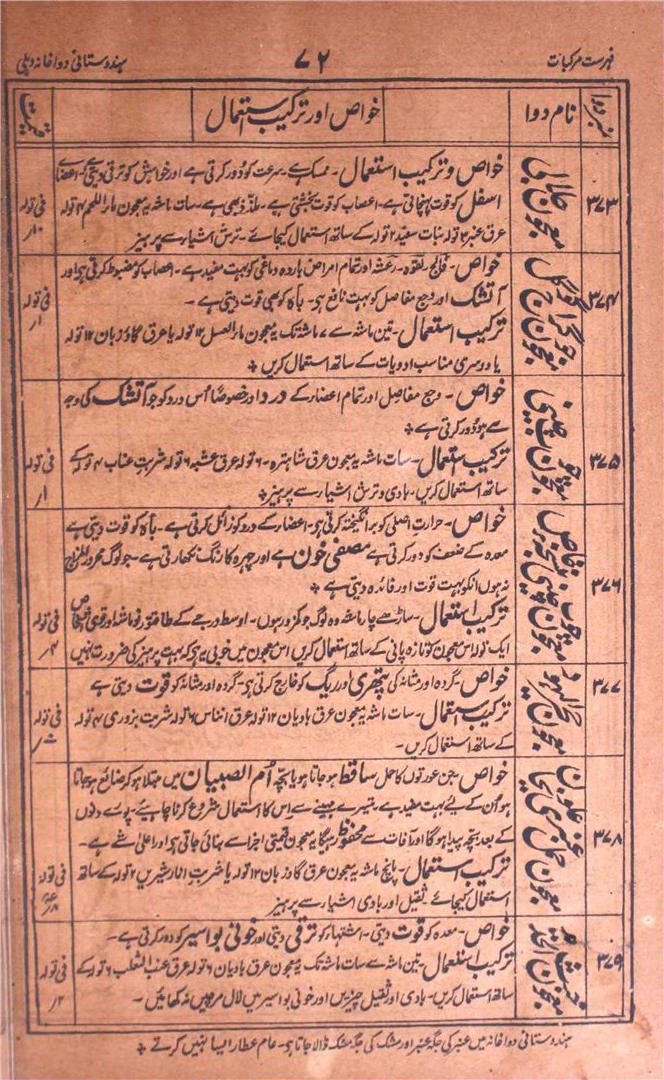 فہرست مرکبات
۷۲
ہندوستانی دواخانہ دہلی
نمبر دوا
نام دوا
خواص اور ترکیب استعمال
قیمت
۳۷۳
معجون جلالی
خواص و ترکیب استعمال۔ ممسک ہے۔ سرعت کو دور کرتی ہے اور خواہش کو ترقی دیتی ہے۔ اعضائے
اسفل کو قوت پہنچاتی ہے۔ اعصاب کو قوت بخشتی ہے۔ ملذذ بھی ہے۔ سات ماشہ یہ معجون ماء اللحم ۴ تولہ
عرق عنبر ۳ تولہ نبات سفید ۲ تولہ کے ساتھ استعمال کیجائے۔ ترش اشیار سے پرہیز
فی تولہ
۱۰ر
۳۷۴
معجون جوگراج گوگل
خواص۔ فالج۔ لقوہ۔ رعشہ اور تمام امراض باردہ دماغی کو بہت مفید ہے۔ اعصاب کو مضبوط کرتی ہی اور
آتشک اور وجع مفاصل کو بہت نافع ہی۔ باہ کو بھی قوت دیتی ہے۔
ترکیب استعمال۔ تین ماشہ سے ۷ ماشہ تک یہ معجون مار العسل ۱۲ تولہ یا عرق گاؤ زبان ۱۲ تولہ
یا دوسری مناسب ادویات کے ساتھ استعمال کریں
فی تولہ
۱ر
۳۷۵
معجون چوب چینی
خواص۔ وجع مفاصل اور تمام اعضار کے درد اور خصوصًا اُس درد کو جو آتشک کی وجہ
سے ہو دُور کرتی ہے
ترکیب استعمال۔ سات ماشہ یہ معجون عرق شاہترہ۔ ۶ تولہ عرق عشبہ ۶ تولہ شربت عناب ۴ تولہ کے
ساتھ استعمال کریں۔ بادی و ترش اشیار سے پرہیز
فی تولہ
۱ر
۳۷۶
معجون چوب چینی بنسخہ خاص
خواص۔ حرارت اصلی کو برانگیختہ کرتی ہی۔ اعضار کے درد کو زائل کرتی ہے۔ باہ کو قوت دیتی ہے
معدہ کے ضعف کو دور کرتی ہے مصفی خون ہے اور چہرہ کا رنگ نکھارتی ہے۔ جو لوگ محرور المزاج
نہ ہوں انکو بہت قوت اور فائدہ دیتی ہے
ترکیب استعمال۔ ساڑھے چار ماشہ وہ لوگ جو کمزور ہوں۔ اوسط درجے کے طاقتور نو ماشہ اور قوی اشخاص
ایک تولہ اس معجون کو تازہ پانی کے ساتھ استعمال کریں اس معجون میں خوبی یہ ہی کہ بہت پرہیز کی ضرورت نہیں
فی تولہ
۴ر
۳۷۷
معجون حجر الیہود
خواص۔ گردہ اور مثانہ کی پتھری اور ریگ کو خارج کرتی ہی۔ گردہ اور مثانہ کو قوت دیتی ہے
ترکیب استعمال۔ سات ماشہ یہ معجون عرق بادیان ۱۲ تولہ عرق انناس ۶ تولہ شربت بزوری ۴ تولہ
کے ساتھ استعمال کریں۔
فی تولہ
۳۷۸
معجون حمل عنبری علویخاں
خواص۔ جن عورتوں کا حمل ساقط ہو جاتا ہو یا بچہ اُم الصبیان میں مبتلا ہو کر ضائع ہو جاتا
ہو اُن کے لیے بہت مفید ہے۔ تیسرے مہینے سے اس کا استعمال شروع کرنا چاہیے۔ پورے دنوں
کے بعد بچہ پیدا ہوگا اور آفات سے محفوظ رہیگا یہ معجون قیمتی اجزا سے بنائی جاتی ہی اور اعلیٰ شے ہے۔
ترکیب استعمال۔ پانچ ماشہ یہ معجون عرق گاؤ زبان ۱۲ تولہ یا شربت انار شیریں ۲ تولہ کے ساتھ
استعمال کیجائے۔ ثقیل اور بادی اشیار سے پرہیز
فی تولہ
۳۷۹
معجون خبث الحدید
خواص۔ معدہ کو قوت دیتی۔ اشتہار کو ترقی دیتی اور خونی بواسیر کو دور کرتی ہے۔
ترکیب استعمال۔ تین ماشہ سے سات ماشہ تک یہ معجون عرق بادیان ۶ تولہ عرق عنب الثعلب ۶ تولہ کے
ساتھ استعمال کریں۔ بادی اور ثقیل چیزیں اور خونی بواسیر میں لال مرچیں نہ کھائیں۔
فی تولہ
۲ر
ہندوستانی دواخانہ میں عنبر کی جگہ عنبر اور مشک کی جگہ مشک ڈالا جاتا ہی۔ عام عطار ایسا نہیں کرتے